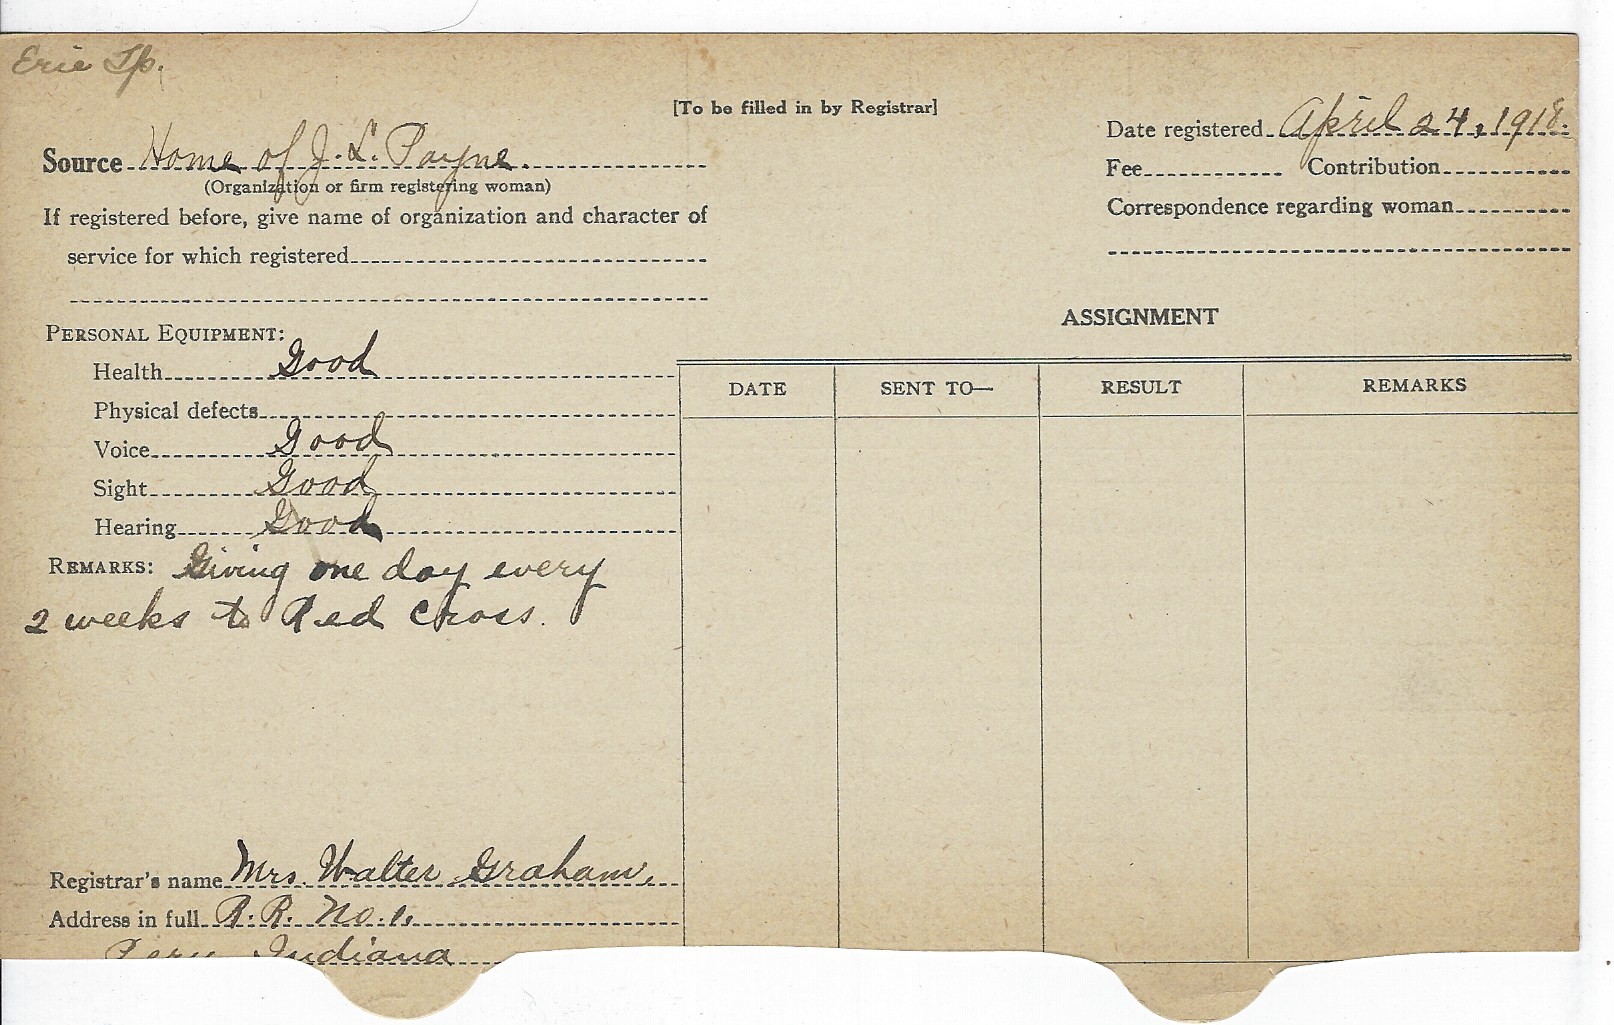 Erie Tp.
[To be filled in by Registrar]
Date registered April 24, 1918.
Source Home of J. L. Payne.
(Organization or firm registering woman)
Fee Contribution
If registered before, give name of organization and character of
service for which registered
Correspondence regarding woman
PERSONAL EQUIPMENT:
Health Good
Physical defects
Voice Good
Sight Good
Hearing Good
REMARKS: Giving one day every
2 weeks to Red Cross.
ASSIGNMENT
DATE SENT TO— RESULT REMARKS
Registrar's name Mrs. Walter Graham.
Address in full R. R. No. 1.
Peru Indiana